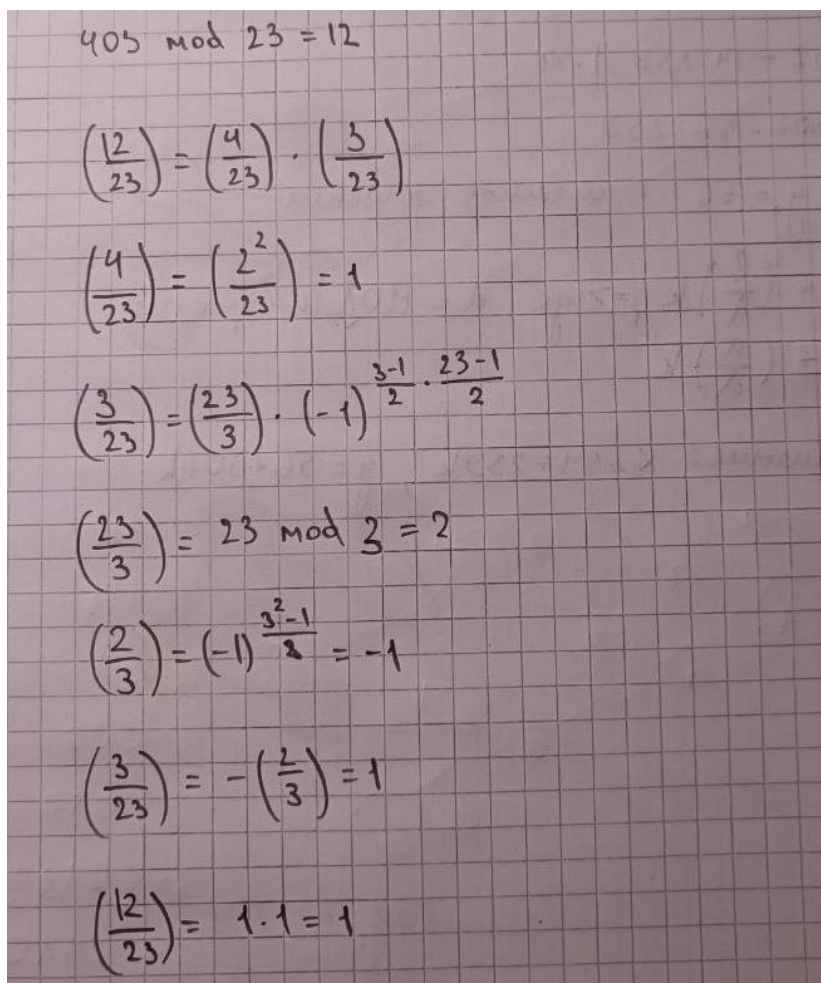 403 mod 23 = 12
(12/23) = (4/23) · (3/23)
(4/23) = (2²/23) = 1
(3/23) = (23/3) · (-1)^((3-1)/2 · (23-1)/2)
(23/3) = 23 mod 3 = 2
(2/3) = (-1)^((3²-1)/8) = -1
(3/23) = -(2/3) = 1
(12/23) = 1 · 1 = 1